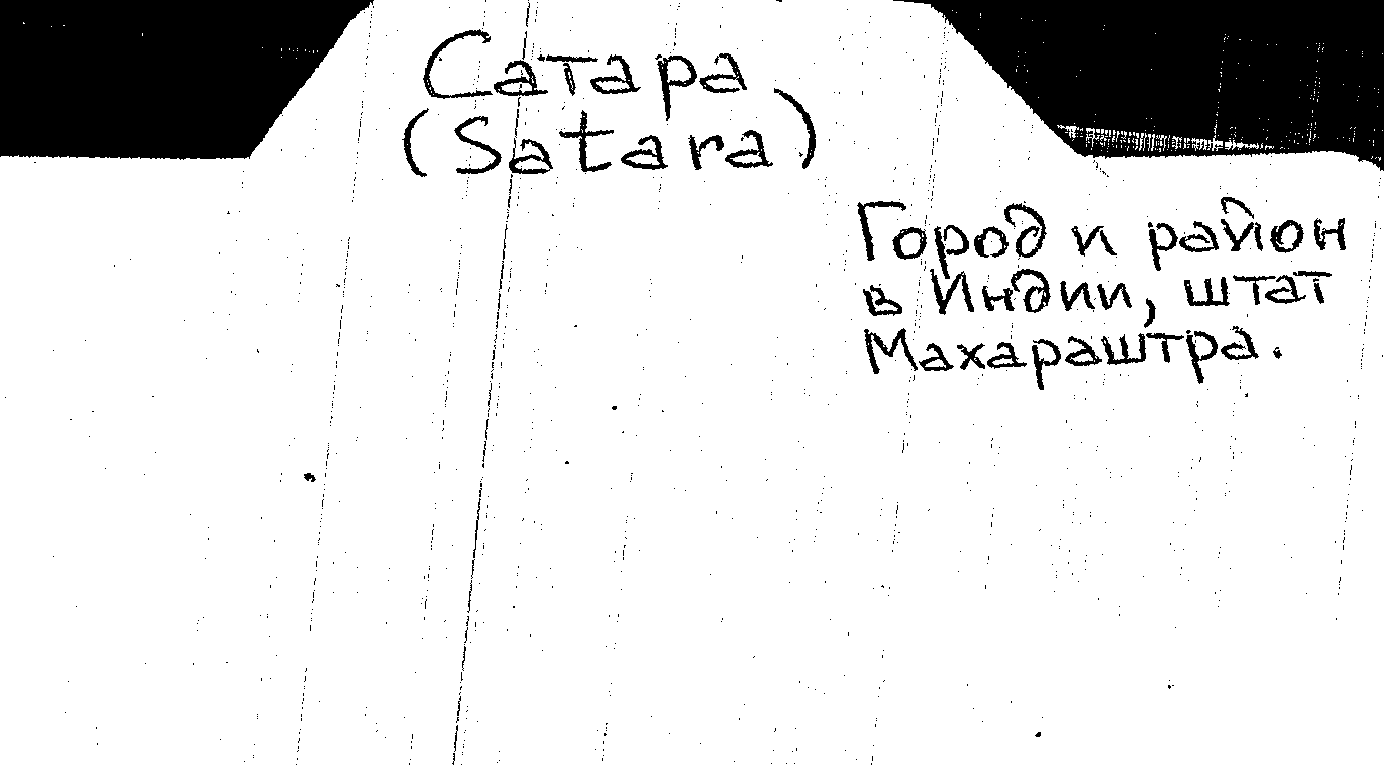 Сатара
(Satara)
Город и район
в Индии, штат
Махараштра.